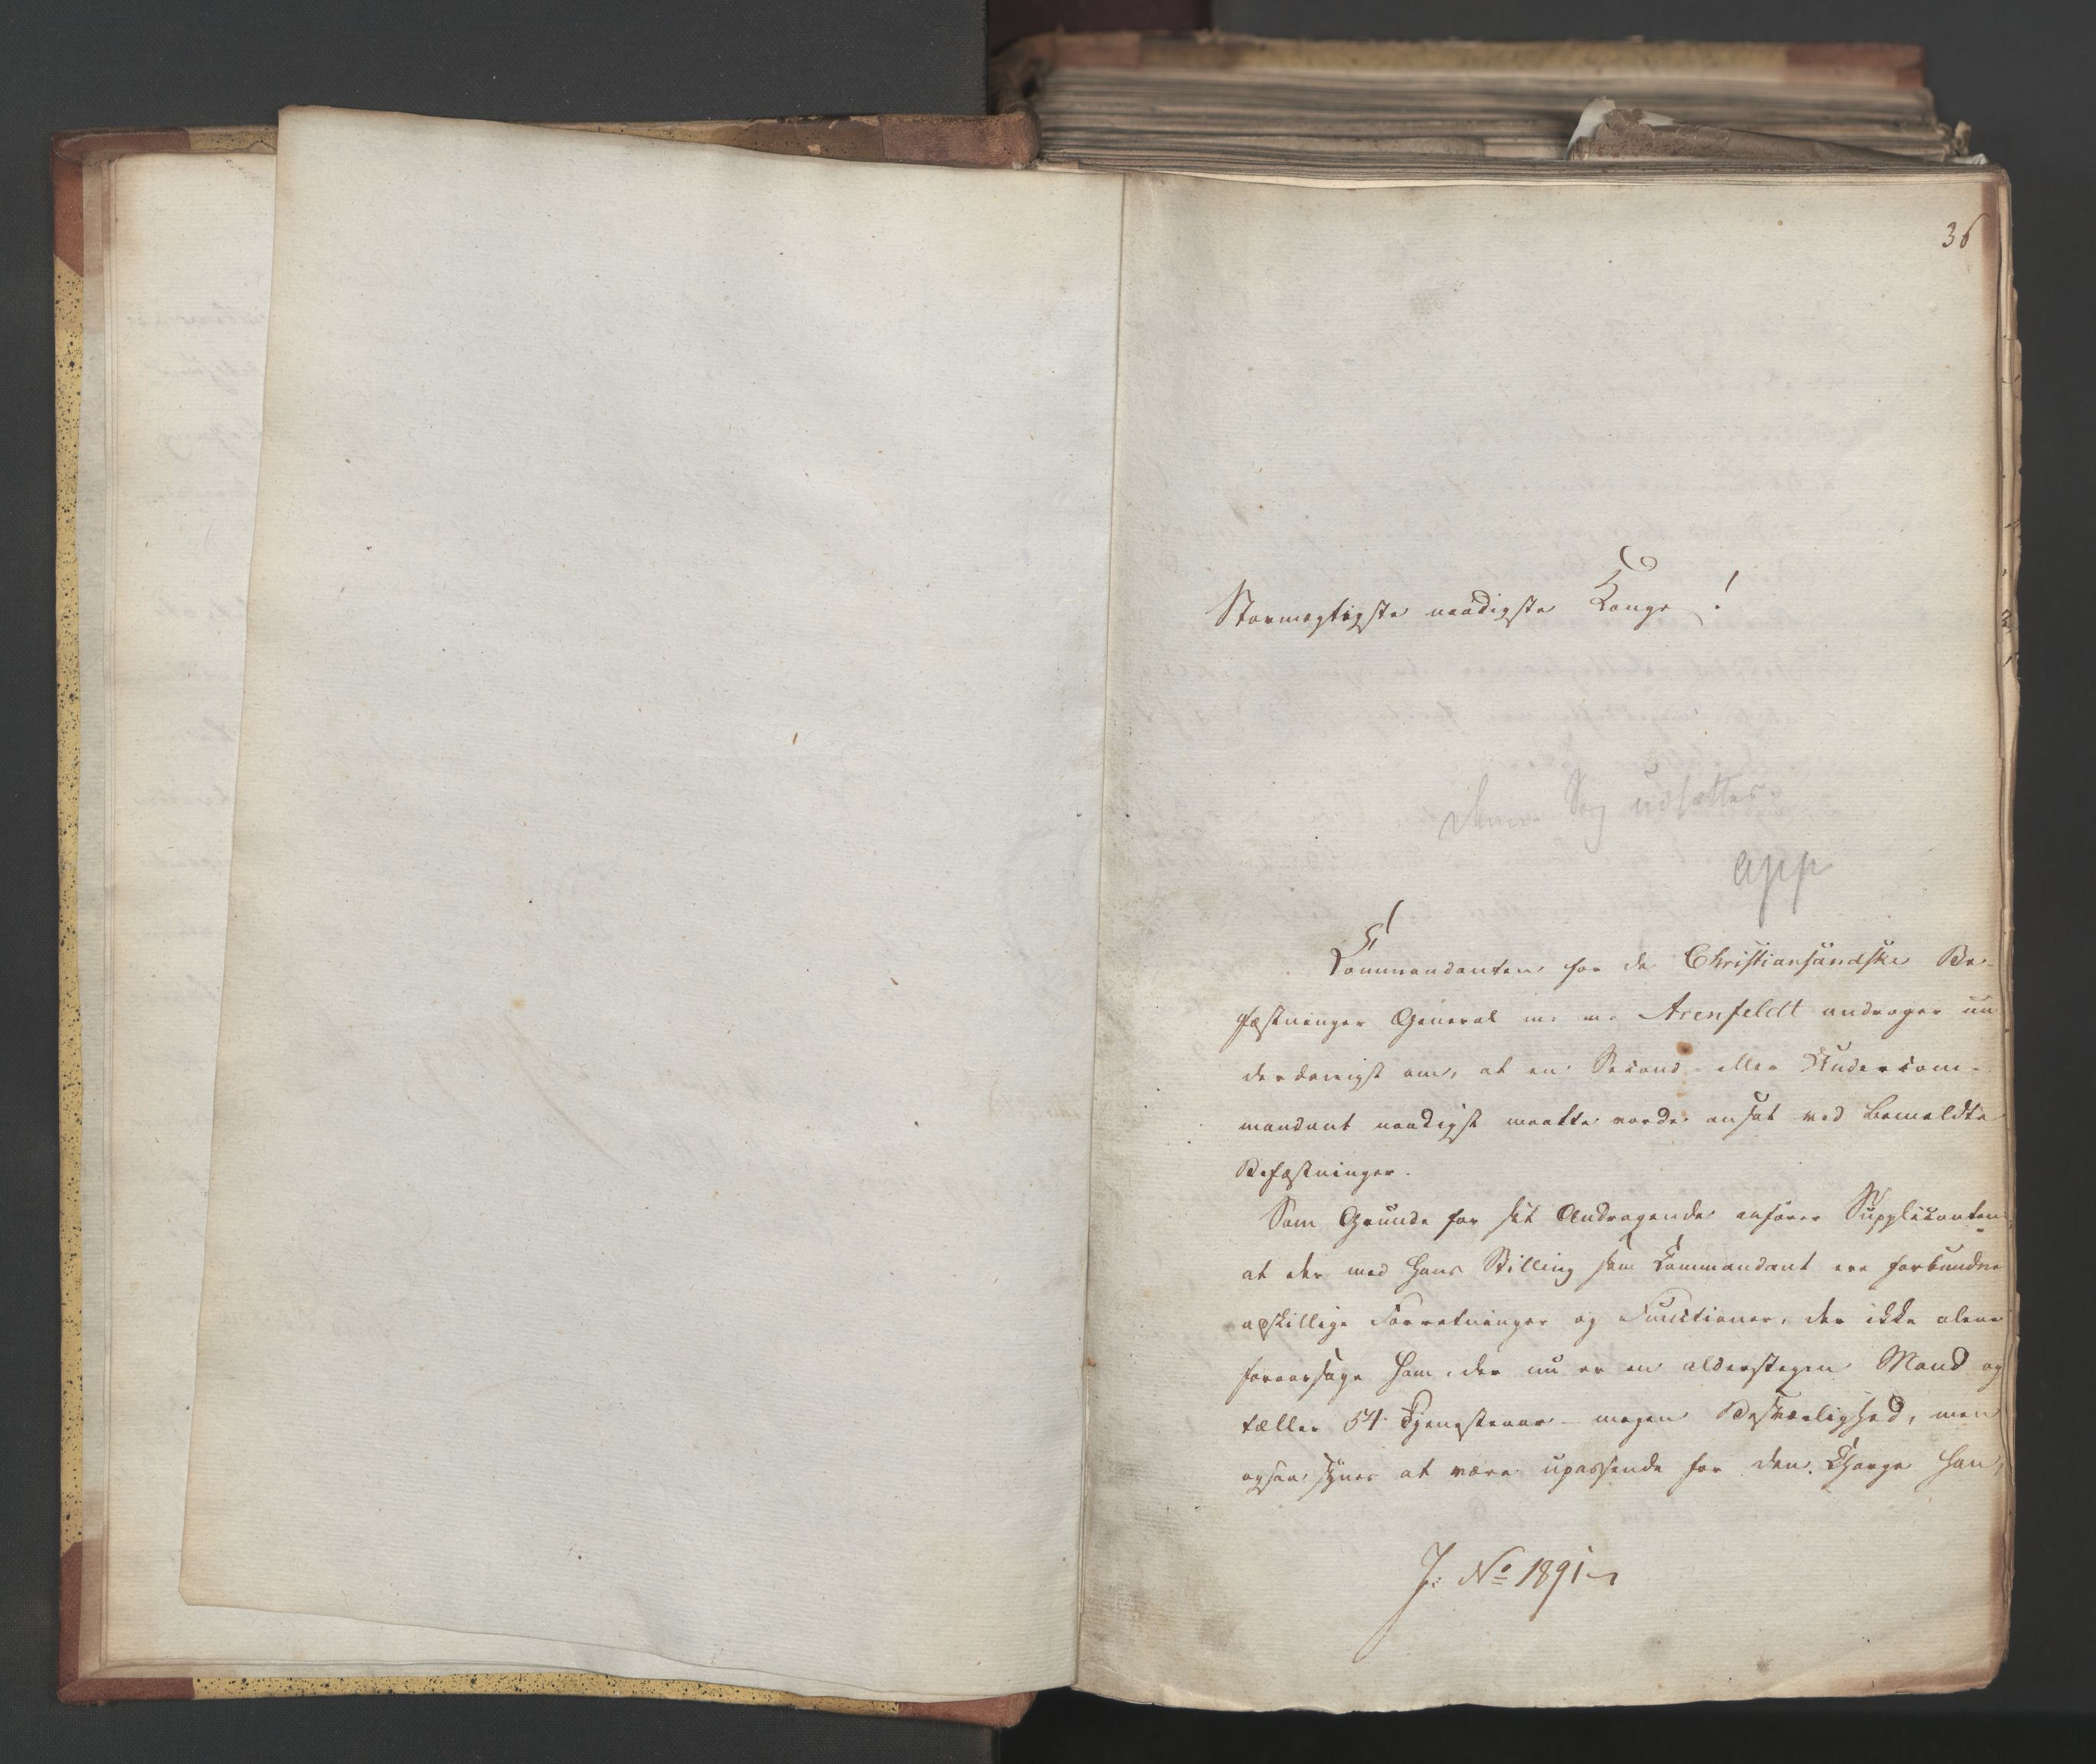 36
Stormægtigste naadigste Konge!
Denne Sag udsættes.
app
Commandanten for de Christiansandske Be-
fæstninger General m. m. Arenfeldt andrager un
derdanigst om, at en Second- eller Undercom-
mandant naadigst maatte vorde ansat ved bemeldte
Befæstninger.
Som Grunde for sit Andragende anfører Supplicanten,
at der med hans Stilling som Commandant ere forbundne
adskillige Forretninger og Functioner, der ikke alene
foraarsage ham, der nu er en alderstegen Mand og
tæller 54 Tjenesteaar - megen Besværlighed, men
ogsaa synes at være upassende for den Charge han,
J: No 1891